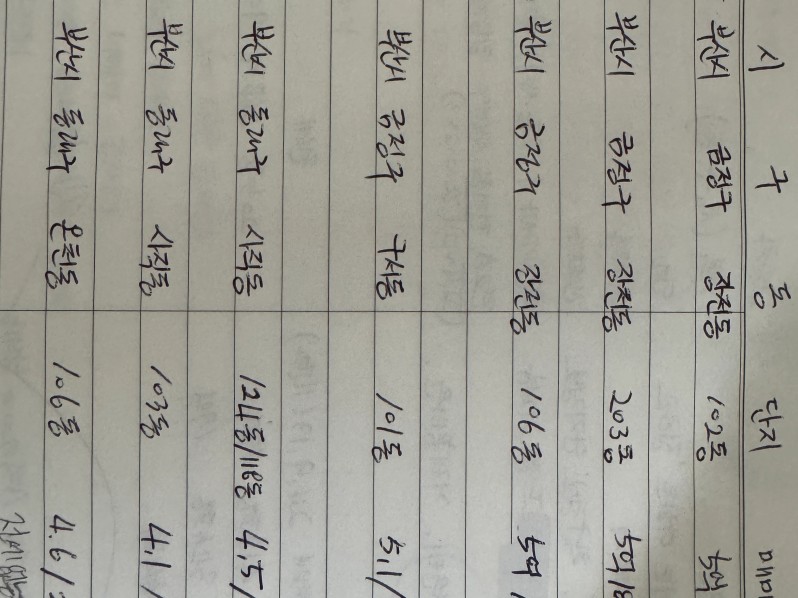 시 구 동 단지 매매
부산시 금정구 장전동 102동 5억
부산시 금정구 장전동 203동 5억
부산시 금정구 장전동 106동 5억
부산시 금정구 구서동 101동 5.1/
부산시 동래구 사직동 124동/118동 4.5/
부산시 동래구 사직동 103동 4.1/
부산시 동래구 온천동 106동 4.6/